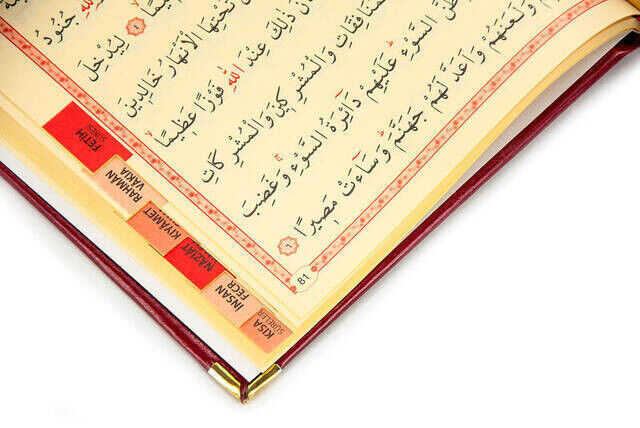 جُنُودُ
لِيُدْخِلَ
تَحْتِهَا الْاَنْهَارُ خَالِدِينَ
ذٰلِكَ عِنْدَ اللّٰهِ فَوْزًا عَظِيمًا
وَالْمُشْرِكِينَ وَالْمُشْرِكَاتِ
ظَنَّ السَّوْءِ عَلَيْهِمْ دَٓائِرَةُ السَّوْءِ وَغَضِبَ
وَلَعَنَهُمْ وَاَعَدَّ لَهُمْ جَهَنَّمَ وَسَٓاءَتْ مَصِيرًا ٦
81
FETİH
SURESİ
RAHMAN
VAKIA
KIYAMET
NAZİAT
İNSAN
FECR
KISA
SURELER